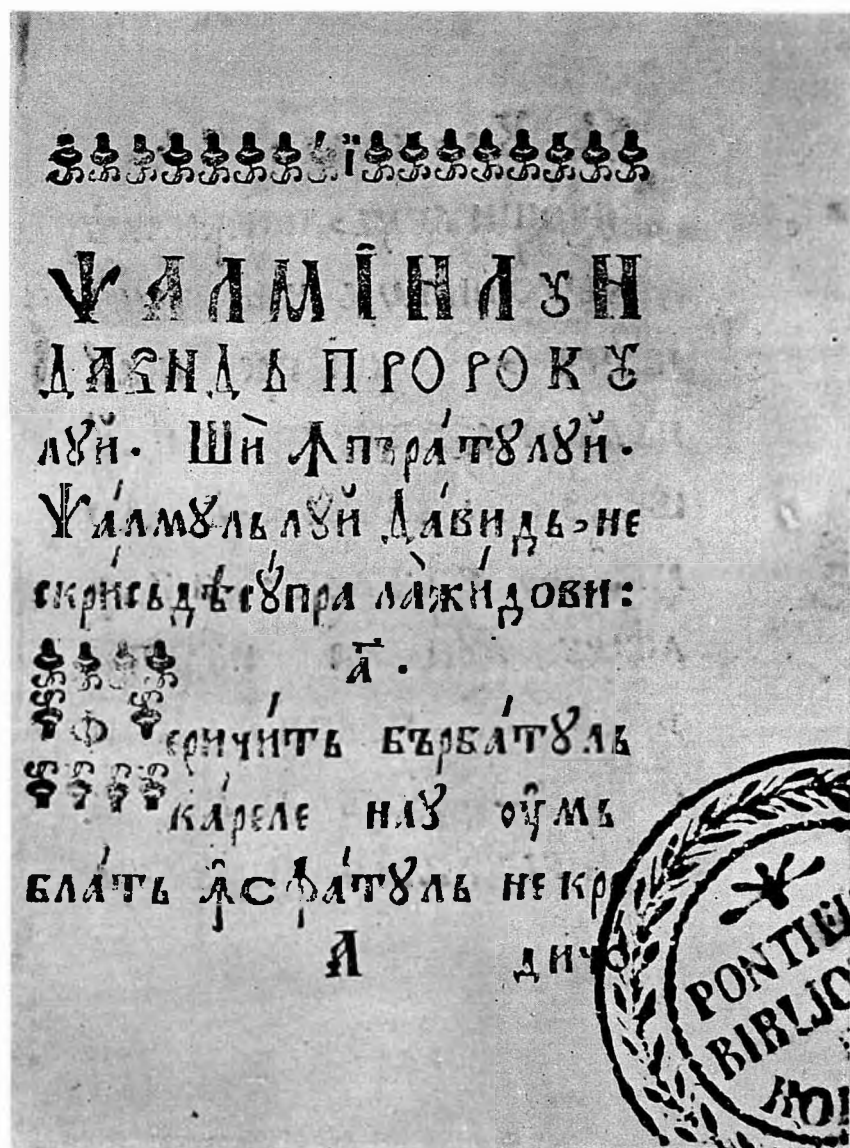 ї
ѰАЛМІИ ЛꙋИ
ДАВИДЬ ПРОРОКꙋ
лꙋ́й. Шѝ ꙟпъра́тꙋлꙋй.
Ѱа́лмꙋль лꙋ́й Да́видь, не
скри́сь дѣсꙋ́пра ла̀жи́дови:
а҃.
Фєричи́ть бърба́тꙋль
ка́реле наꙋ ѹ҆мь
бла́ть ꙟ҆сфа́тꙋль некре
А дичо
PONTIFI
BIBLIO